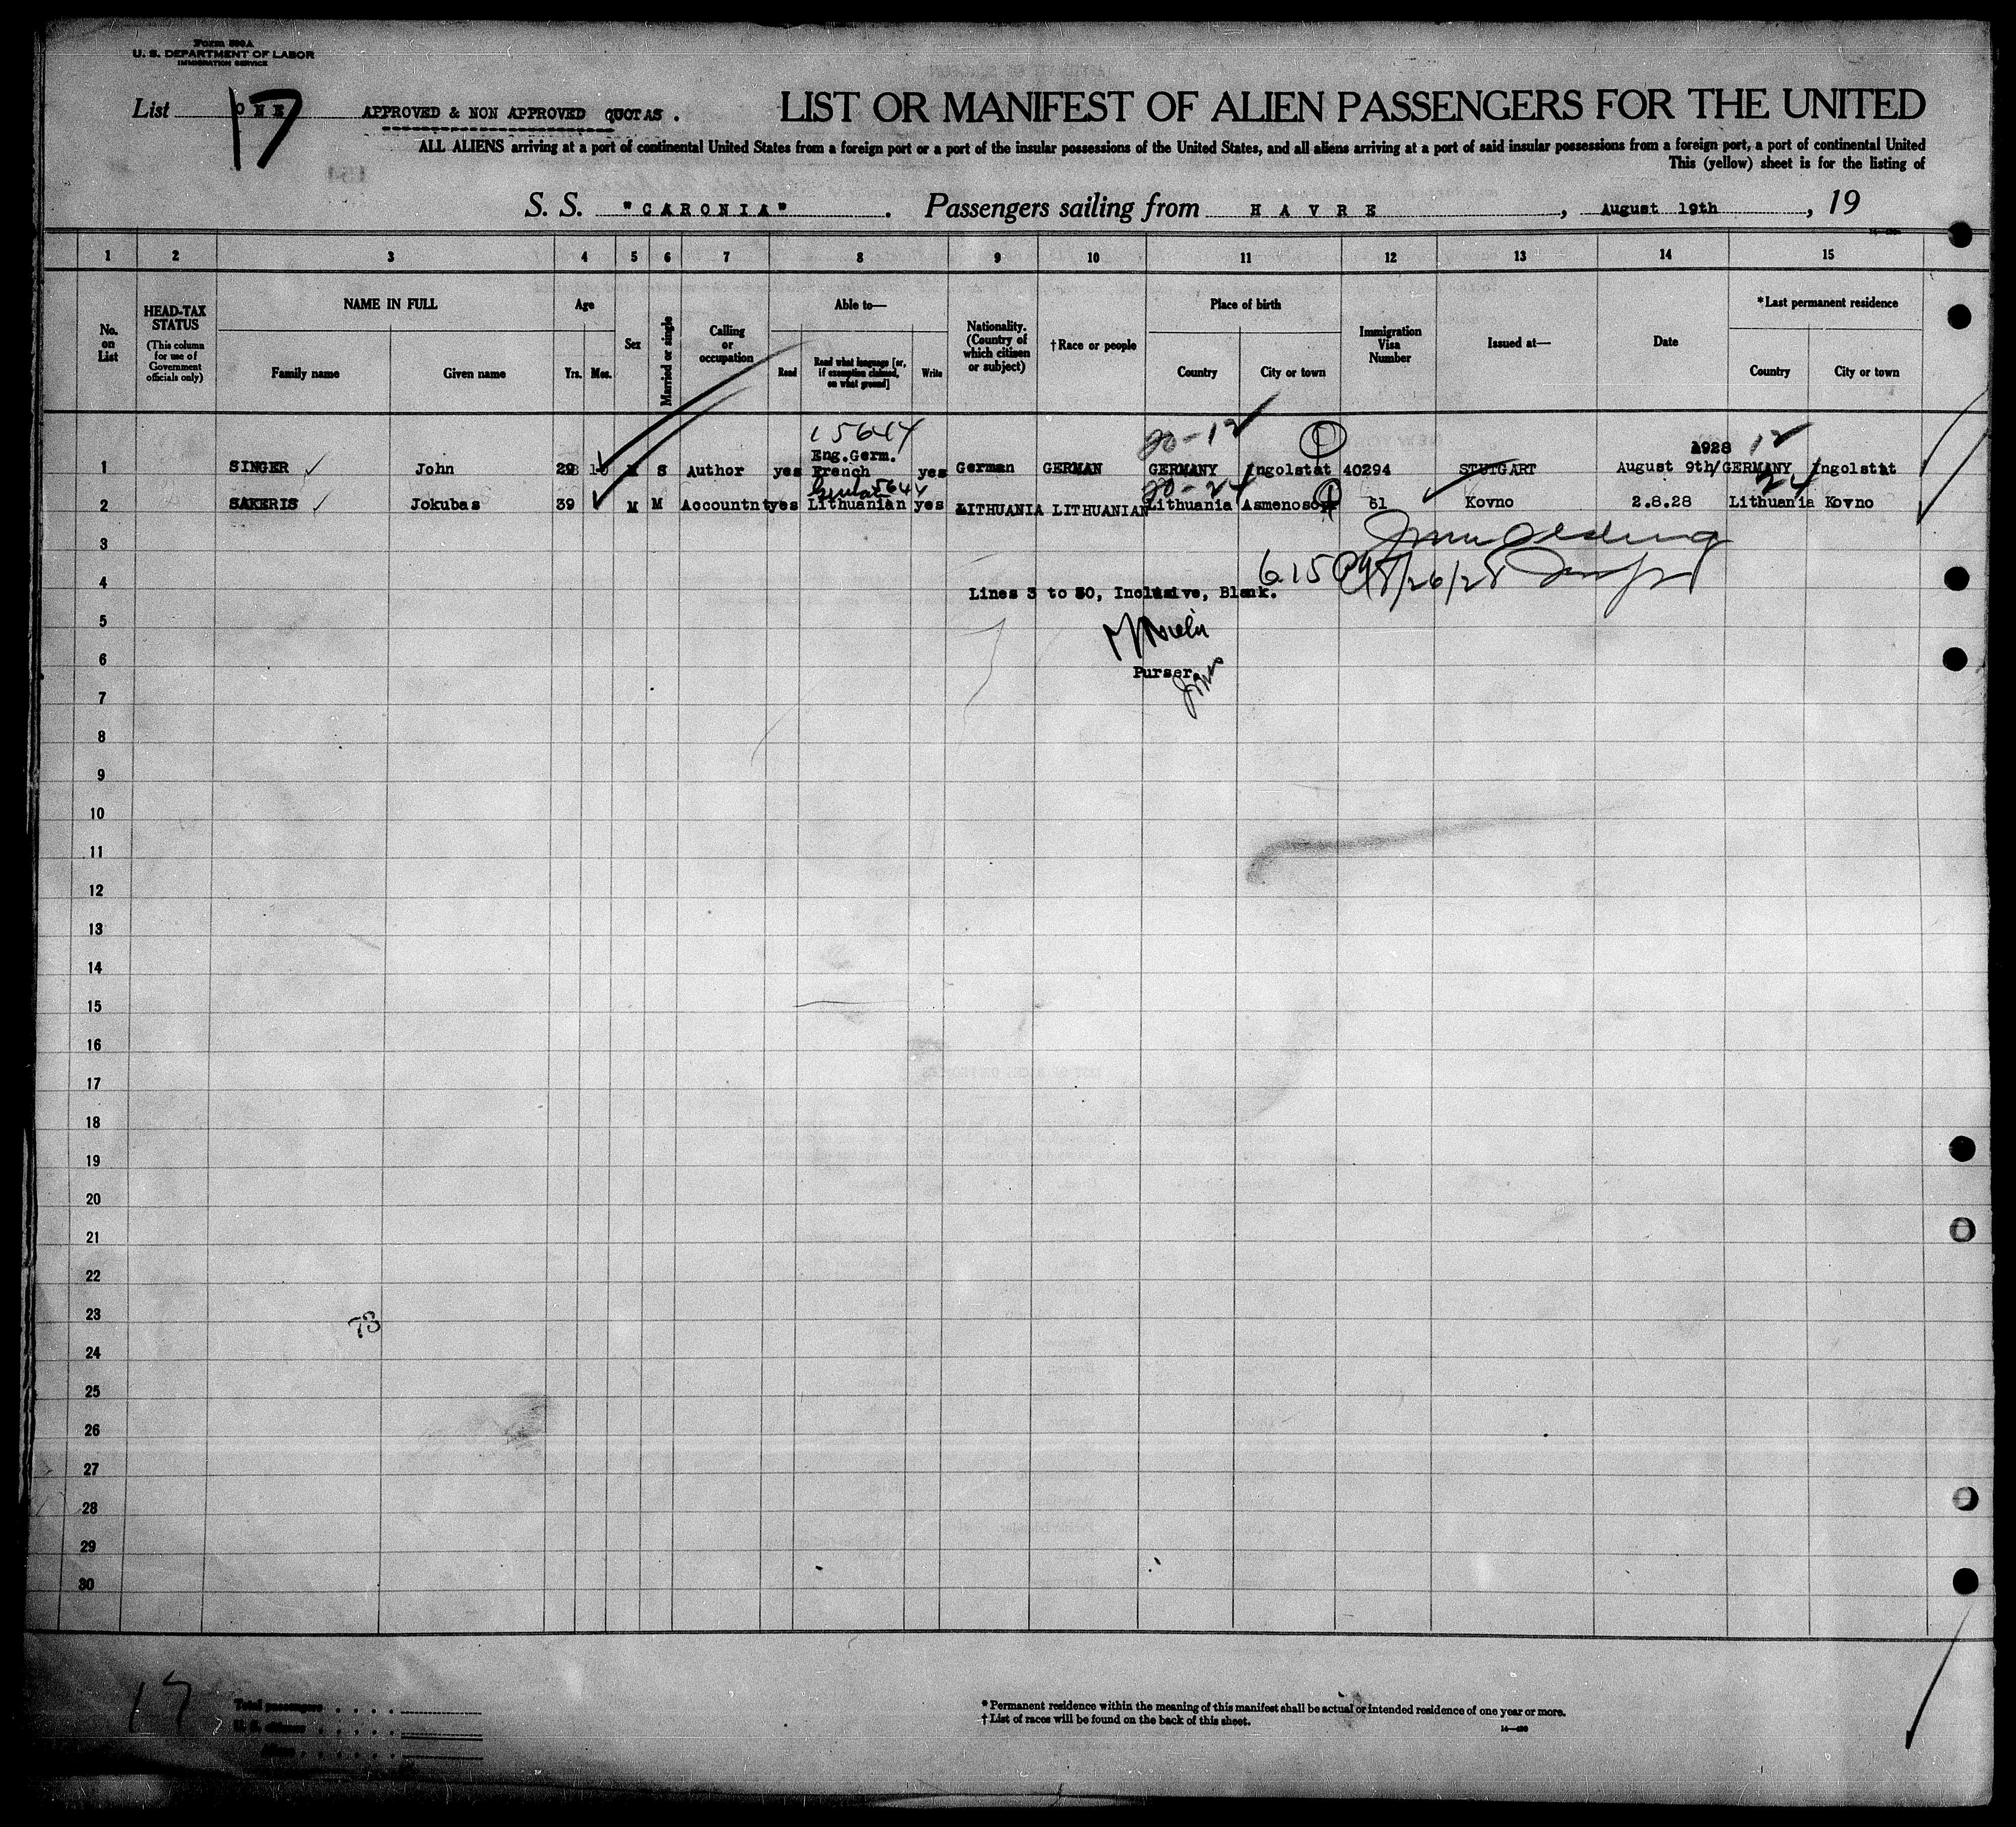 Form 500A
U. S. DEPARTMENT OF LABOR
IMMIGRATION SERVICE
List ONE 17 APPROVED & NON APPROVED QUOTAS.
LIST OR MANIFEST OF ALIEN PASSENGERS FOR THE UNITED
ALL ALIENS arriving at a port of continental United States from a foreign port or a port of the insular possessions of the United States, and all aliens arriving at a port of said insular possessions from a foreign port, a port of continental United
This (yellow) sheet is for the listing of
S. S. "CARONIA". Passengers sailing from HAVRE, August 19th, 19
1 2 3 4 5 6 7 8 9 10 11 12 13 14 15
No. on List
HEAD-TAX STATUS
(This column for use of Government officials only)
NAME IN FULL
Family name Given name
Age
Yrs. Mos.
Sex
Married or single
Calling or occupation
Able to—
Read
Read what language [or, if exemption claimed, on what ground]
Write
Nationality. (Country of which citizen or subject)
†Race or people
Place of birth
Country City or town
Immigration Visa Number
Issued at—
Date
*Last permanent residence
Country City or town
15644 20-12 1928 12
Eng.Germ.
1 SINGER John 29 10 M S Author yes French yes German GERMAN GERMANY Ingolstat 40294 STUTGART August 9th/ GERMANY Ingolstat
5644 20-24 24
2 SAKERIS Jokubas 39 M M Accountnt yes Lithuanian yes LITHUANIA LITHUANIAN Lithuania 61 Kovno 2.8.28 Lithuania Kovno
3
615 PM 8/26/28
4 Lines 3 to 30, Inclusive, Blank.
5
6 Purser
7
8
9
10
11
12
13
14
15
16
17
18
19
20
21
22
23
73
24
25
26
27
28
29
30
17
Total passengers . . . .
U. S. citizens . . . .
Aliens . . . . . .
* Permanent residence within the meaning of this manifest shall be actual or intended residence of one year or more.
† List of races will be found on the back of this sheet.
14—430